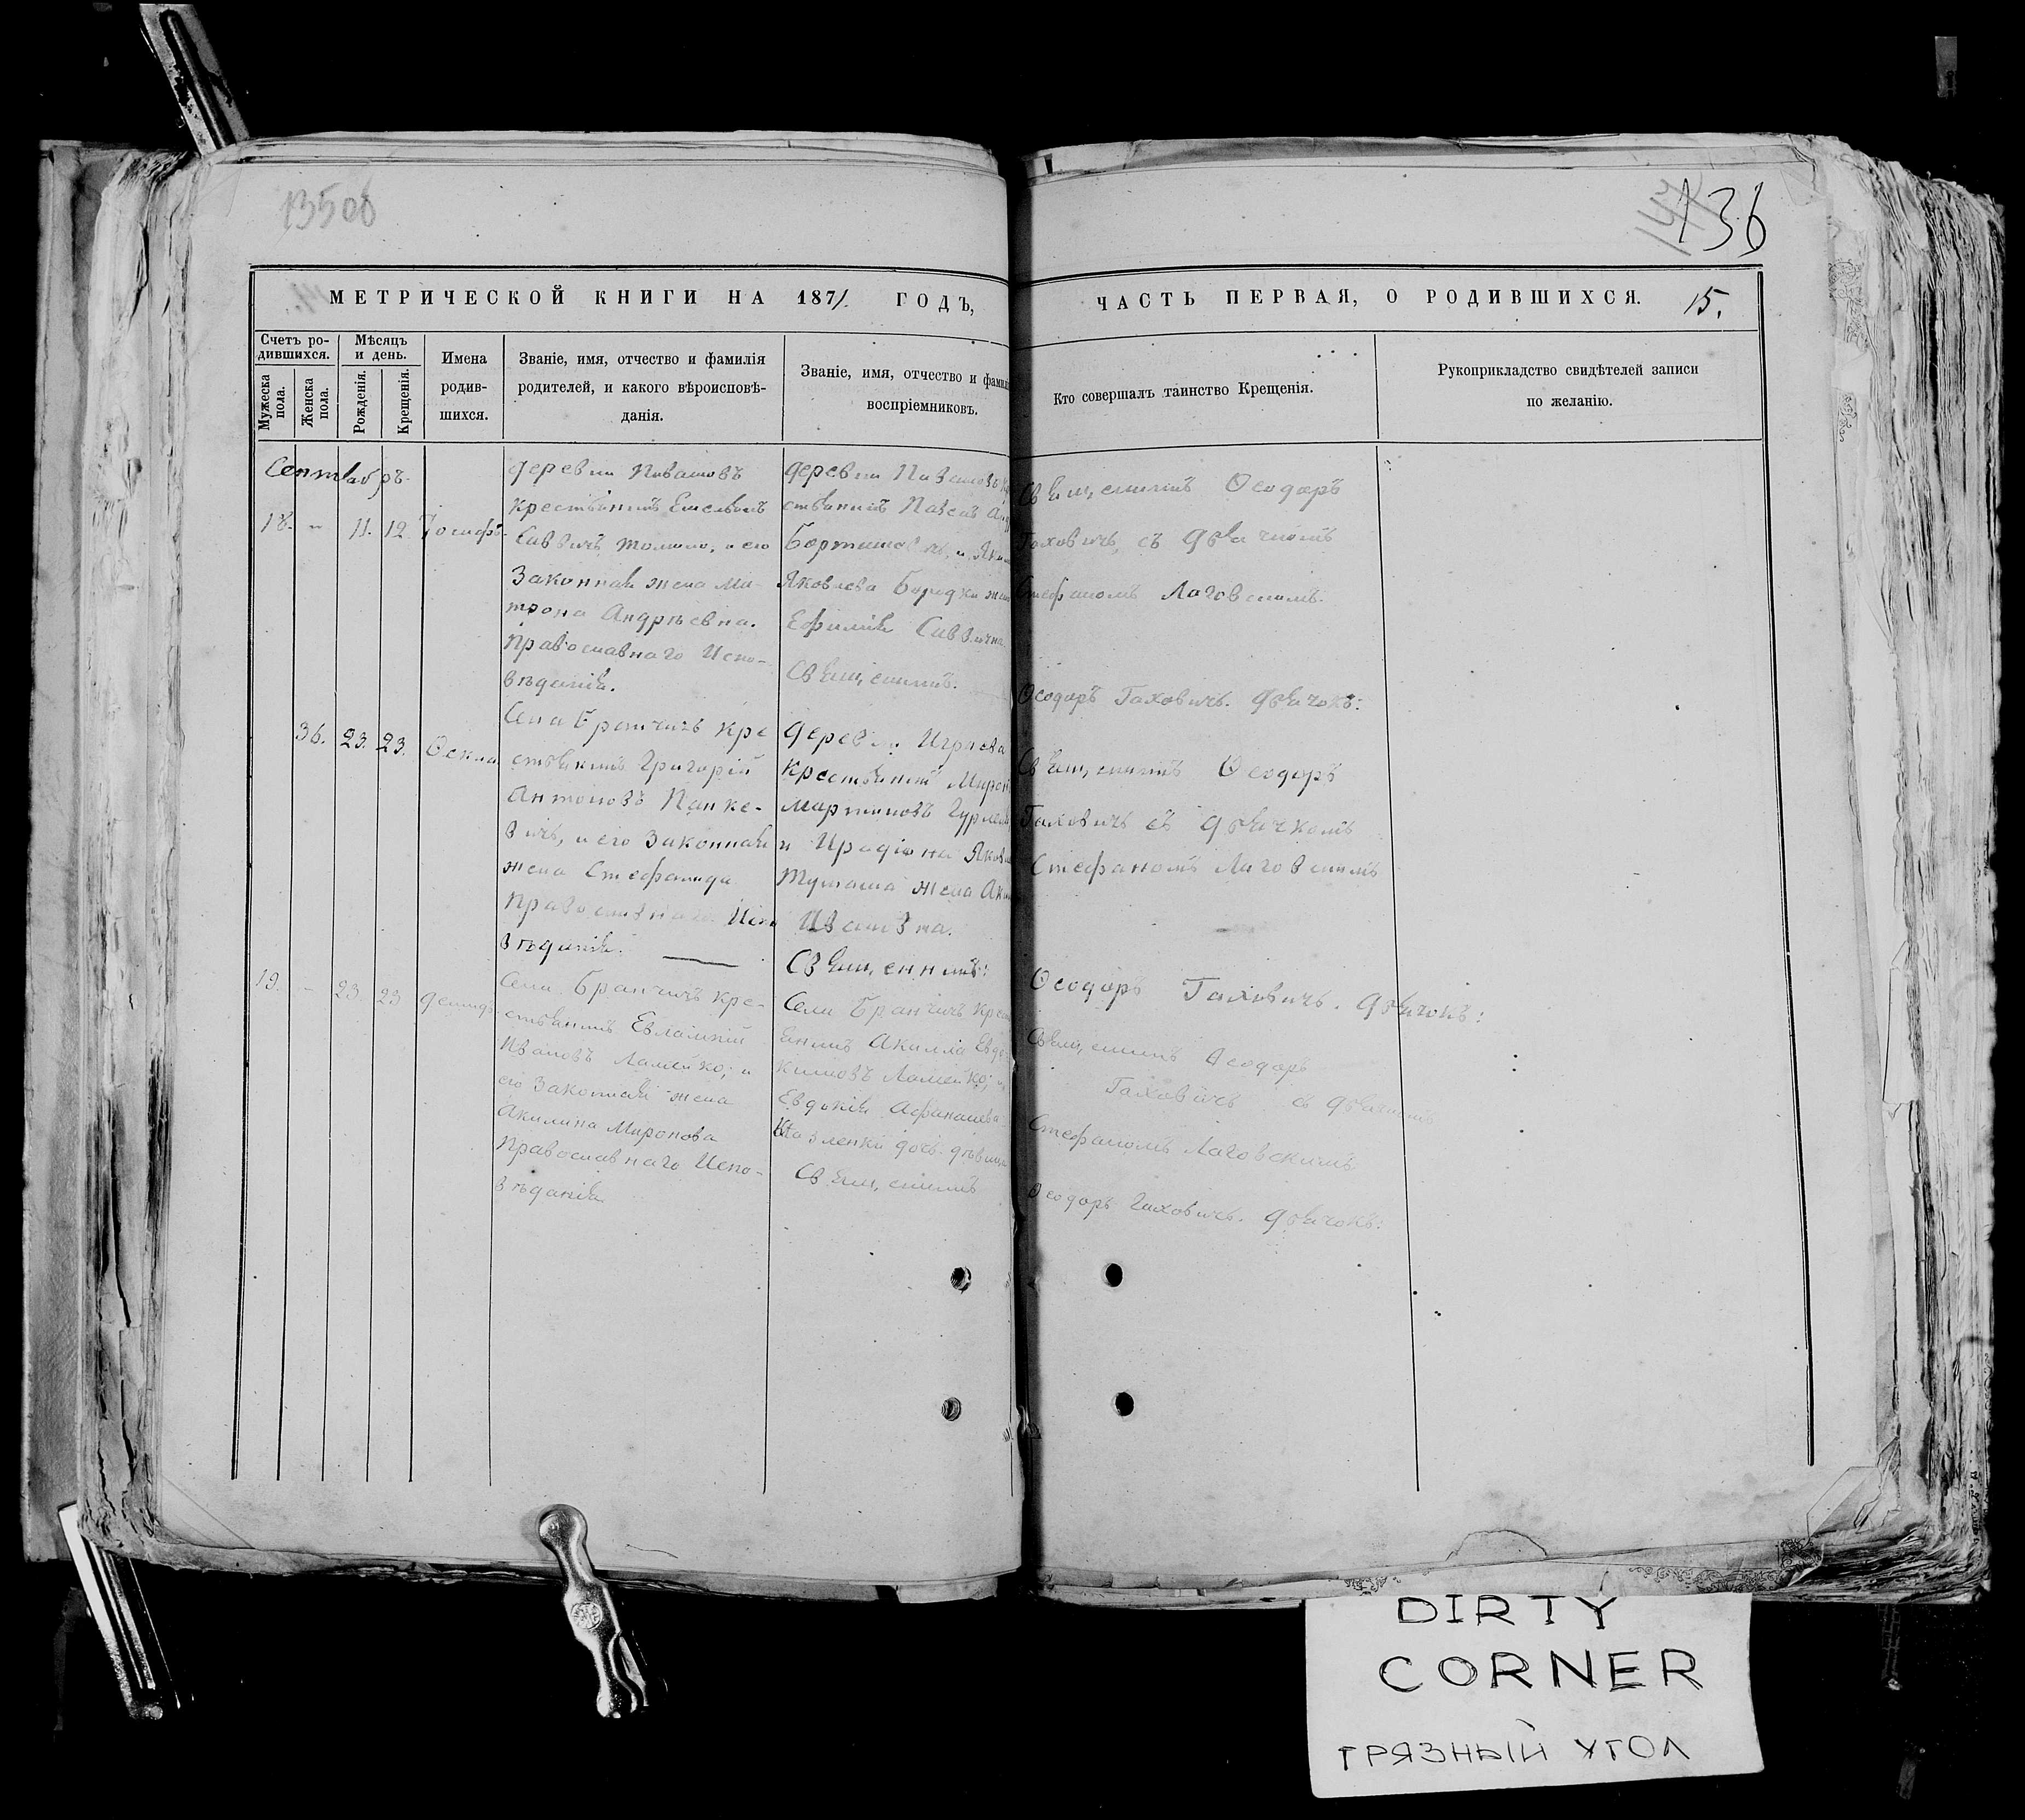 13506
136
МЕТРИЧЕСКОЙ КНИГИ НА 1871. ГОДЪ,
ЧАСТЬ ПЕРВАЯ, О РОДИВШИХСЯ. 15.
Счетъ ро-
дившихся.
Мѣсяцъ
и день.
Мужеска
пола.
Женска
пола.
Рожденія.
Крещенія.
Имена
родив-
шихся.
Званіе, имя, отчество и фамилія
родителей, и какого вѣроисповѣ-
данія.
Званіе, имя, отчество и фамилі
воспріемниковъ.
Кто совершалъ таинство Крещенія.
Рукоприкладство свидѣтелей записи
по желанію.
Сентябрь.
18. " 11. 12. Іосифъ.
деревни
крестьянинъ Емельянъ
Саввичъ и его
Законная жена Ма-
трона Андрѣевна.
Православнаго Испо-
вѣданія.
деревни
Яковлева жен
Ефимія Саввична
Священникъ.
Священникъ Ѳеодоръ
Гаховичъ, съ дьячкомъ
Стефаномъ Лаговскимъ.
Ѳеодоръ Гаховичъ. дьячокъ:
36. 23. 23. Ѳекла
Села Бранчичъ кре
стьянинъ Григорій
Антоновъ Панке-
вичъ, и его Законная
жена Стефанида
Православнаго Испо
вѣданія.
деревни
крестьянинъ Мирон
Мартиновъ
и
жена
Ивановна.
Священникъ:
Священникъ Ѳеодоръ
Гаховичъ съ дьячкомъ
Стефаномъ Лаговскимъ
Ѳеодоръ Гаховичъ. дьячокъ:
19. - 23. 23 Демидъ
Села Бранчичъ кре-
стьянинъ Евлампій
Ивановъ Ламейко; и
его Законная жена
Акилина Миронова
Православнаго Испо-
вѣданія.
Села Бранчичъ Крест
янинъ Акилла Евдо
кимовъ Ламейко; и
Евдокія Афанасьева
дочь дѣвица
Священникъ
Священникъ Ѳеодоръ
Гаховичъ съ дьячкомъ
Стефаномъ Лаговскимъ
Ѳеодоръ Гаховичъ. дьячокъ:
DIRTY
CORNER
ГРЯЗНЫЙ УГОЛ